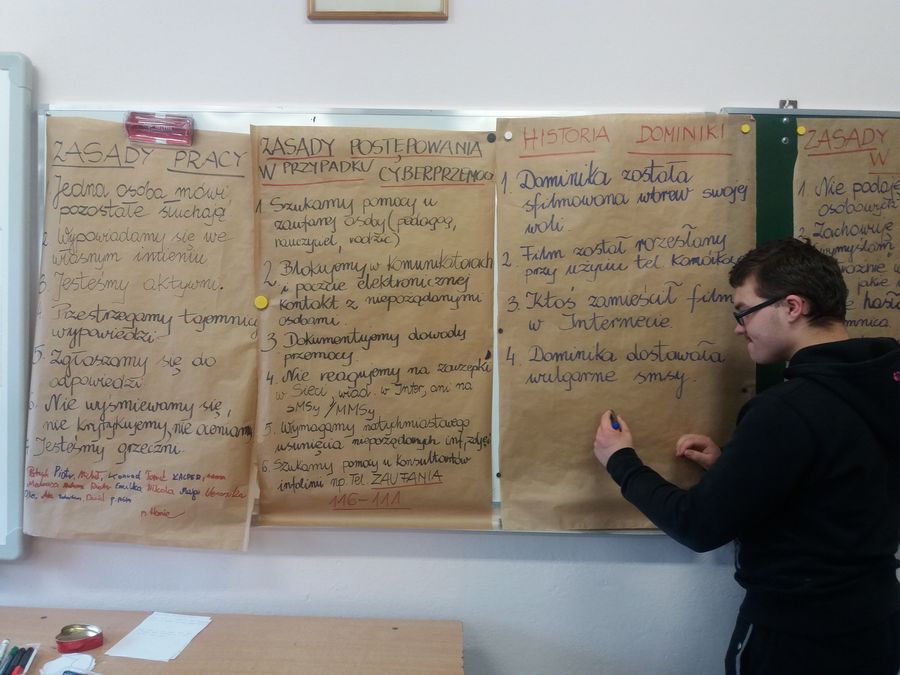 ZASADY PRACY
Jedna osoba mówi
pozostałe słuchają
2. Wypowiadamy się we
własnym imieniu
3. Jesteśmy aktywni.
4. Przestrzegamy tajemnicy
wypowiedzi
5. Zgłaszamy się do
odpowiedzi
6. Nie wyśmiewamy się,
nie krytykujemy, nie oceniamy
7. Jesteśmy grzeczni.
Patryk Piotr, Michał, Konrad Tomek KACPER,
Emilka Nikola Maja Weronika
Ola, Ada Dawid
ZASADY POSTĘPOWANIA
W PRZYPADKU CYBERPRZEMOC
1. Szukamy pomocy u
zaufanej osoby (pedagog,
nauczyciel, rodzic)
2. Blokujemy w komunikatorach
i poczcie elektronicznej
kontakt z niepożądanymi
osobami.
3. Dokumentujemy dowody
przemocy.
4. Nie reagujemy na zaczepki
w Sieci, wiad. w Inter, ani na
SMSy / MMSy
5. Wymagamy natychmiastowego
usunięcia niepożądanych inf, zdjęć
6. Szukamy pomocy u konsultantów
infolinii np. Tel. ZAUFANIA
116-111
HISTORIA DOMINIKI
1. Dominika została
sfilmowana wbrew swojej
woli.
2. Film został rozesłany
przy użyciu tel. Komórko
3. Ktoś zamieścił film
w Internecie.
4. Dominika dostawała
wulgarne smsy.
ZASADY
W
1. Nie podaj
osobowych
2. Zachowuj